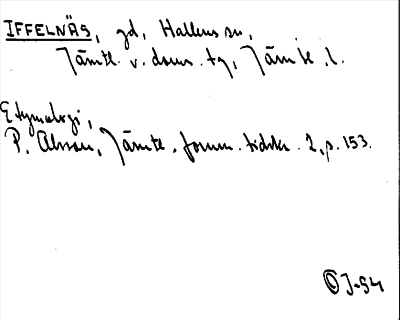 IFFELNÄS, gd, Hallens sn,
Jämtl. v. doms. tg, Jämtl. l.
Etymologi,
P. Olsson, Jämtl. fornm. tidskr. 2, p. 153.
OJ-54